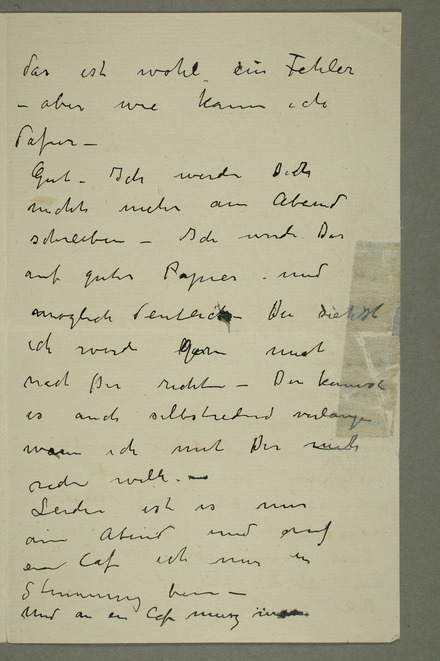 das ist wohl ein Fehler
– aber wie kann ich
dafür –
Gut – Ich werde Dich
nichts mehr am Abend
schreiben – Ich werde Dir
auf gutes Papier – und
moglich deutlich – Du siehst
ich werde gern mich
nach Dir richten – Du kannst
es auch selbstredend verlangen
wenn ich mit Dir
reden will. –
Leider ist es nur
am Abend und auf
ein Caf ich nur in
Stimmung bin –
Und an ein Caf muss